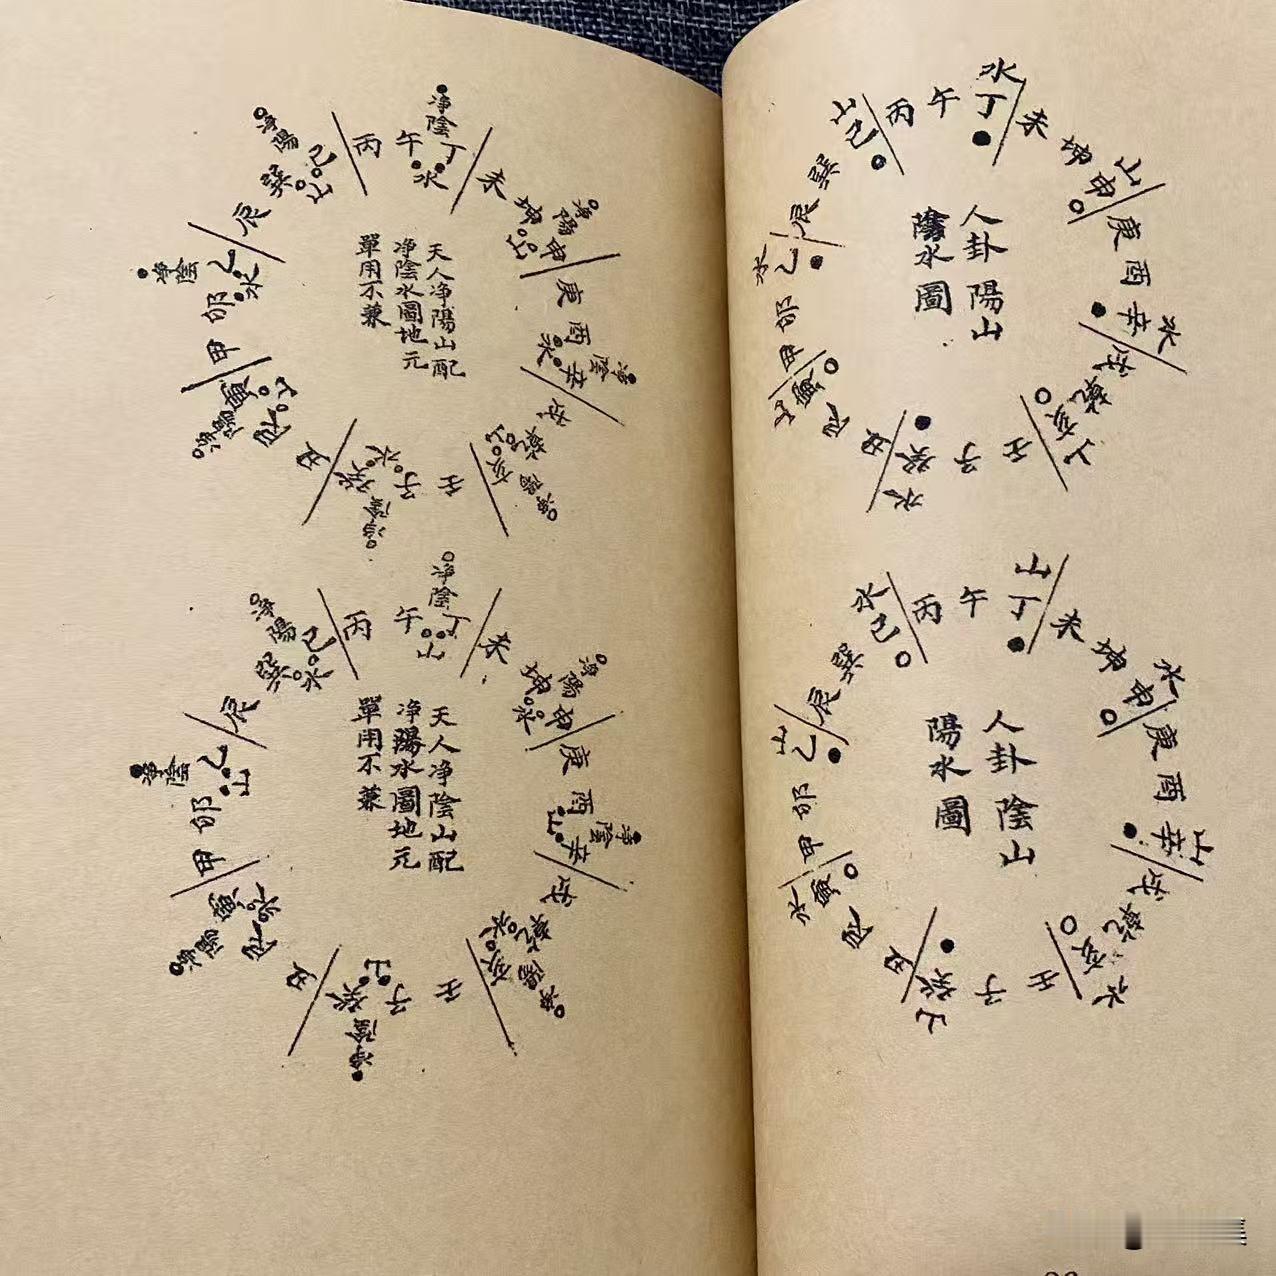 人卦陽山
陰水圖
丙
午
水丁
未
坤
山申
庚
酉
水辛
戌
乾
亥山
壬
子
癸水
丑
艮
寅山
甲
卯
水乙
辰
巽
山巳
人卦陰山
陽水圖
丙
午
山丁
未
坤
水申
庚
酉
山辛
戌
乾
亥水
壬
子
癸山
丑
艮
寅水
甲
卯
山乙
辰
巽
水巳
天人净陽山配
净陰水圖地元
單用不兼
丙
净陰
午
丁
水
未
净陽
坤
申
山
庚
净陰
酉
辛
水
戌
净陽
乾
亥
山
壬
净陰
子
癸
水
丑
净陽
艮
寅
山
甲
净陰
卯
乙
水
辰
净陽
巽
巳
山
天人净陰山配
净陽水圖地元
單用不兼
丙
净陰
午
丁
山
未
净陽
坤
申
水
庚
净陰
酉
辛
山
戌
净陽
乾
亥
水
壬
净陰
子
癸
山
丑
净陽
艮
寅
水
甲
净陰
卯
乙
山
辰
净陽
巽
巳
水